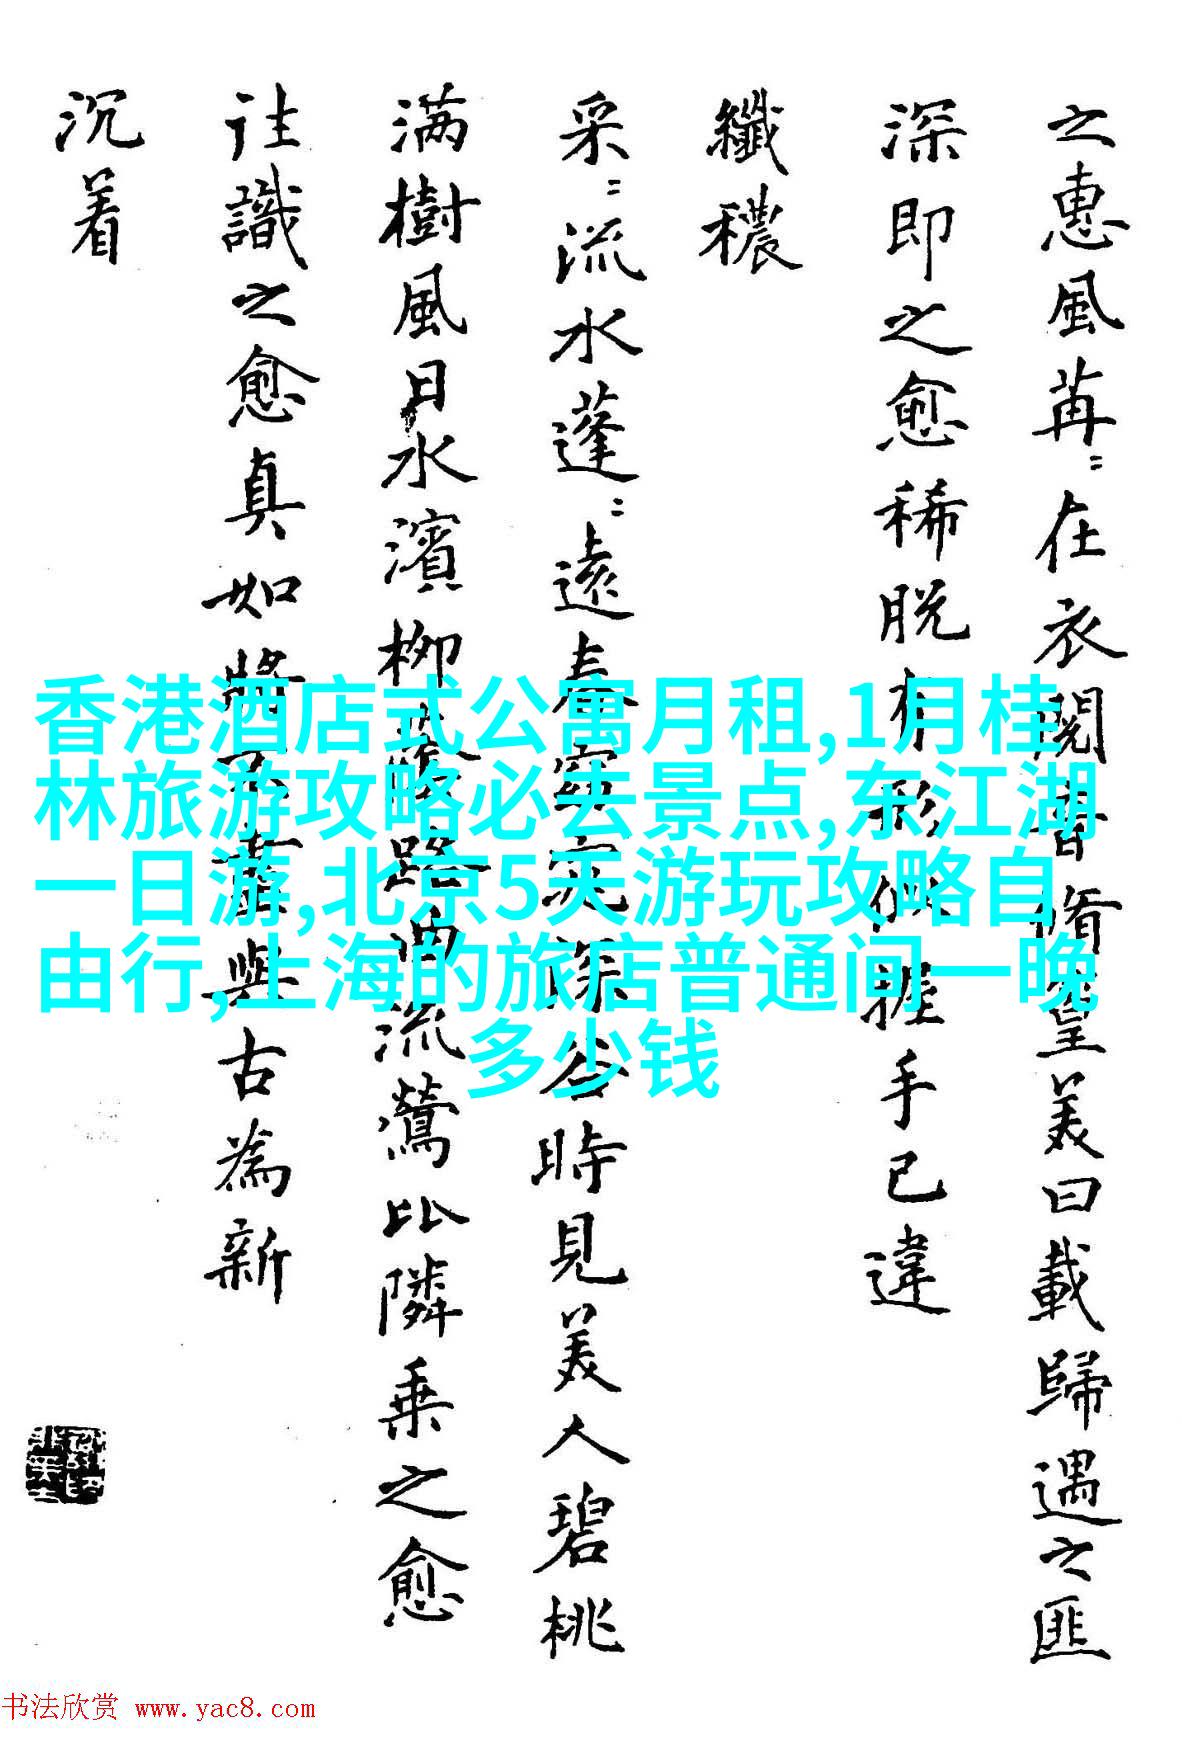 之惠風苒〻在衣閱音脩篁美曰載歸遇之匪
深即之愈稀脫有形似握手已違
纖穠
采〻流水蓬〻遠春窈窕深谷時見美人碧桃
满樹風日水濱柳陰路曲流鶯比隣乘之愈
往識之愈真如將不盡與古為新
沉着
香港酒店式公寓月租,1月桂
林旅游攻略必去景点,东江湖
一日游,北京5天游玩攻略自
由行,上海的旅店普通间一晚
多少钱
书法欣赏 www.yac8.com